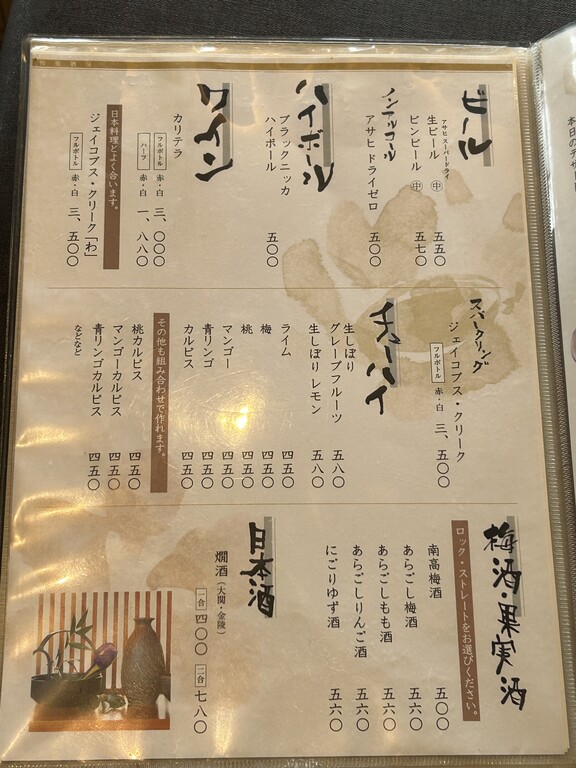 ビール
アサヒ スーパードライ
生ビール ㊥ 五五〇
ビンビール ㊥ 五七〇
ノンアルコール
アサヒ ドライゼロ 五〇〇
ハイボール
ブラックニッカ
ハイボール 五〇〇
ワイン
カリテラ
フルボトル 赤・白 三、〇〇〇
ハーフ 赤・白 一、八八〇
日本料理とよく合います。
ジェイコブス・クリーク「わ」
フルボトル 赤・白 三、五〇〇
スパークリング
ジェイコブス・クリーク
フルボトル 赤・白 三、五〇〇
チューハイ
生しぼり
グレープフルーツ 五八〇
生しぼり レモン 五八〇
ライム 四五〇
梅 四五〇
桃 四五〇
マンゴー 四五〇
青リンゴ 四五〇
カルピス 四五〇
その他も組み合わせで作れます。
桃カルピス 四五〇
マンゴーカルピス 四五〇
青リンゴカルピス 四五〇
などなど
梅酒・果実酒
ロック・ストレートをお選びください。
南高梅酒 五〇〇
あらごし梅酒 五六〇
あらごしもも酒 五六〇
あらごしりんご酒 五六〇
にごりゆず酒 五六〇
日本酒
燗酒（大関・金陵）
一合 四〇〇 二合 七八〇
本日のデザート